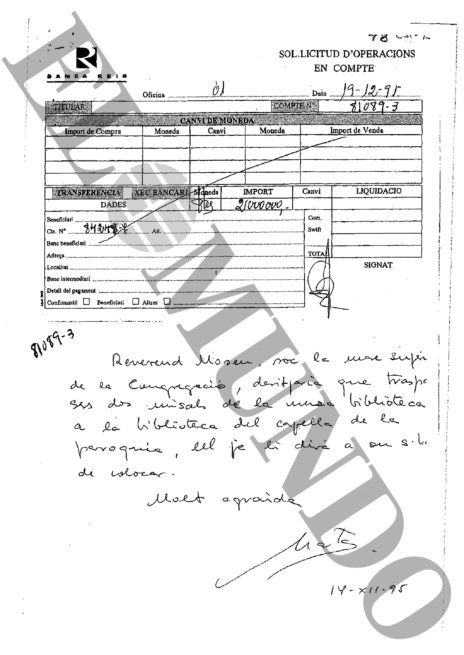 BANCA REIG
SOL.LICITUD D'OPERACIONS
EN COMPTE
Oficina 01 Data 19-12-95
TITULAR COMPTE Nº 81089-3
CANVI DE MONEDA
Import de Compra Moneda Canvi Moneda Import de Venda
TRANSFERENCIA XEC BANCARI Moneda IMPORT Canvi LIQUIDACIO
DADES Ptes 2.000.000,-
Beneficiari
Cte. Nº At. Com.
Banc beneficiari Swift
Adreça TOTAL
Localitat SIGNAT
Banc intermediari
Detall del pagament
Confirmació Beneficiari Altres
81089-3
Reverend Mosen, soc la mare
de la Congregació, desitjaria que traspa
ses dos misals de la meva biblioteca
a la biblioteca del capella de la
parroquia, ell ja li dira a on
de colocar.
Molt agraida
Marta
19-XII-95
EL MUNDO